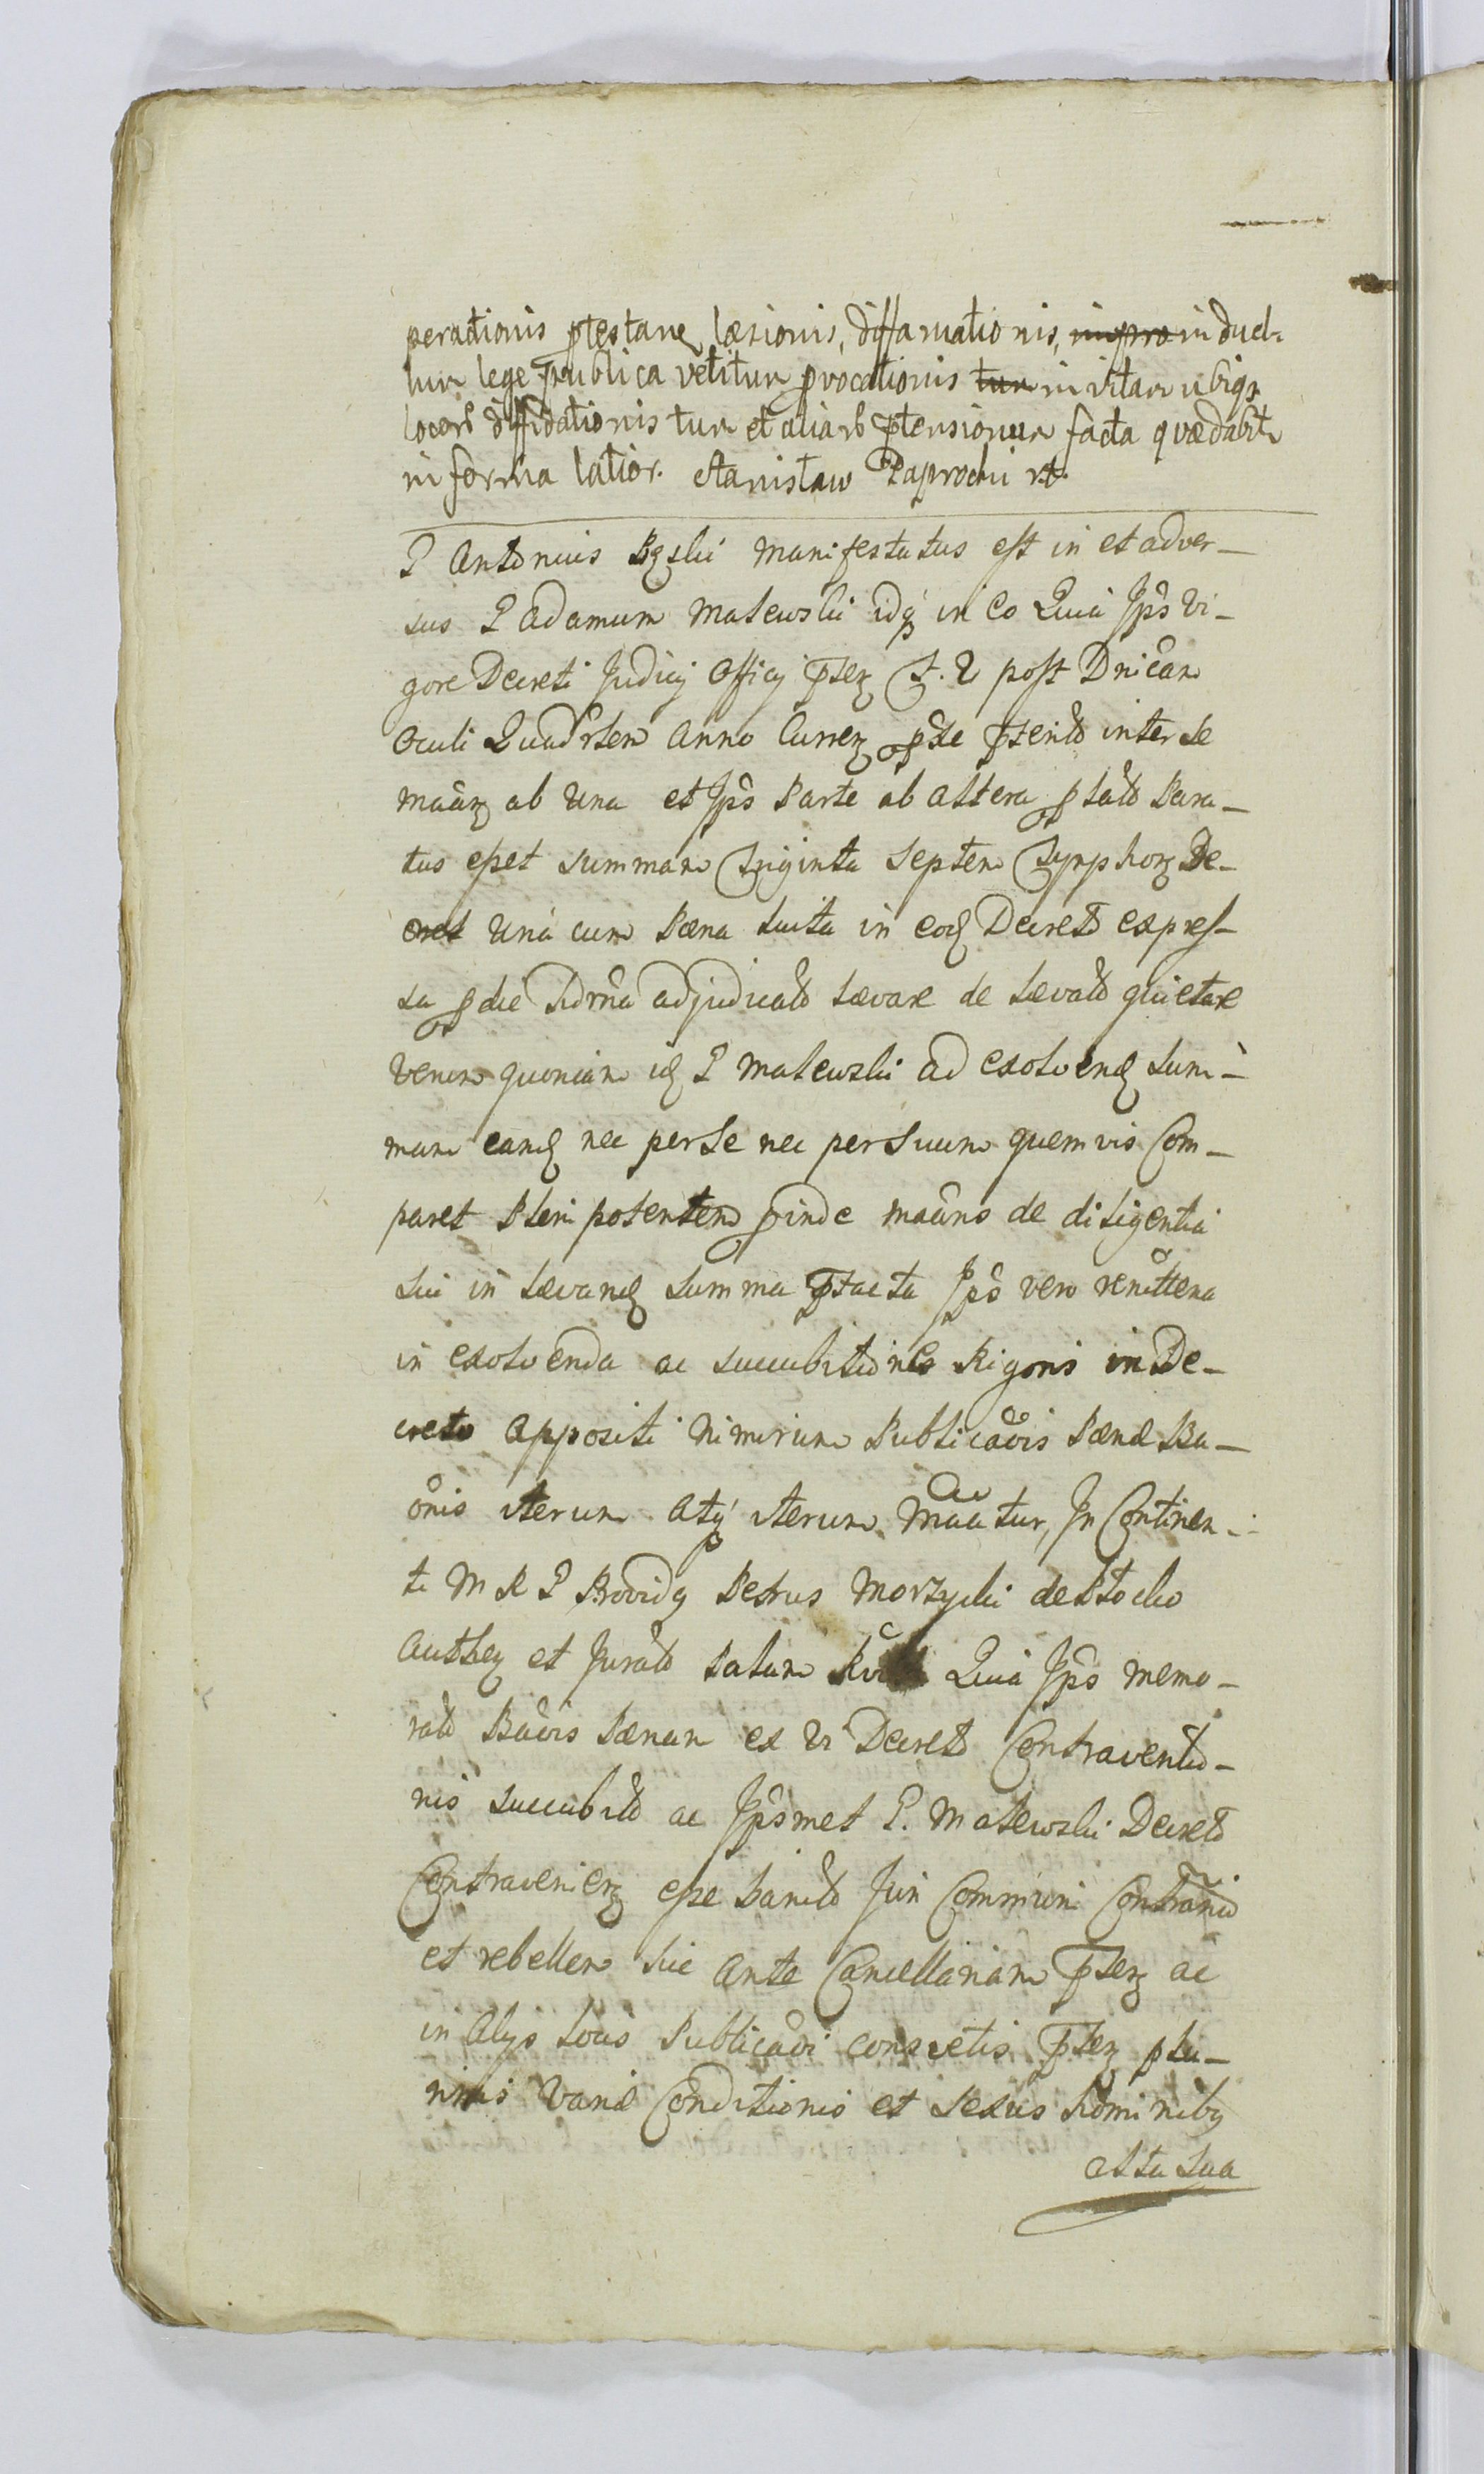 perationis ptestane læsionis, diffamationis, impro in duel-
lum lege publica vetitum pvocationis tum in vitam ubiqs
locorb diffidationis tum et aliarb ptensionum facta quædabit
in forma latior. Stanisław Paprocki rt.
P Antonius Rzski Manifestatus est in et adver-
sus P Adamum Malewski idq in eo Quia Jps Vi-
gore Decreti Judicij Officij psez f. 2 post Dnicam
Oculi Quadrsem Anno Currez pte psento inter se
Maãz ab Una et Jps Parte ab altera plato Para-
tus esset summam Triginta Septem Tymphorz De-
cret Una cum Pæna Luita in eod Decreto expres-
sa pdie Hdrna adjudicato Lævare de Lævato quietare
Verum quoniam id P Malewski ad exolvend Sum-
mam eand nec per se nec per suum quemvis Com-
paret Pleni potentem pinde maãns de diligentia
Sui in Lævand Summa ptacta Jps vero renittena
in exolvenda ac succubitiones Rigoris in De-
creto Appositi Nimirum Publicaois Pænæ Ba-
onis iterum atq iterum Maãtur, In Continen-
ti M R P Providg Petrus Morzycki de Płocko
Authez et Jurato palam Quia Jps memo-
rato Baois Pænam ex Vi Decreto Contraventio-
nis succubito ac Jpsmet P. Malewski Decreto
Contravenierz esse banito Juri Communi Contrario
et rebellem hic ante Cancellariam psez ac
in Alijs Locis Publicaoi consvetis psez plu-
rimis Variæ Conditionis et Sexus hominibg
alta sua